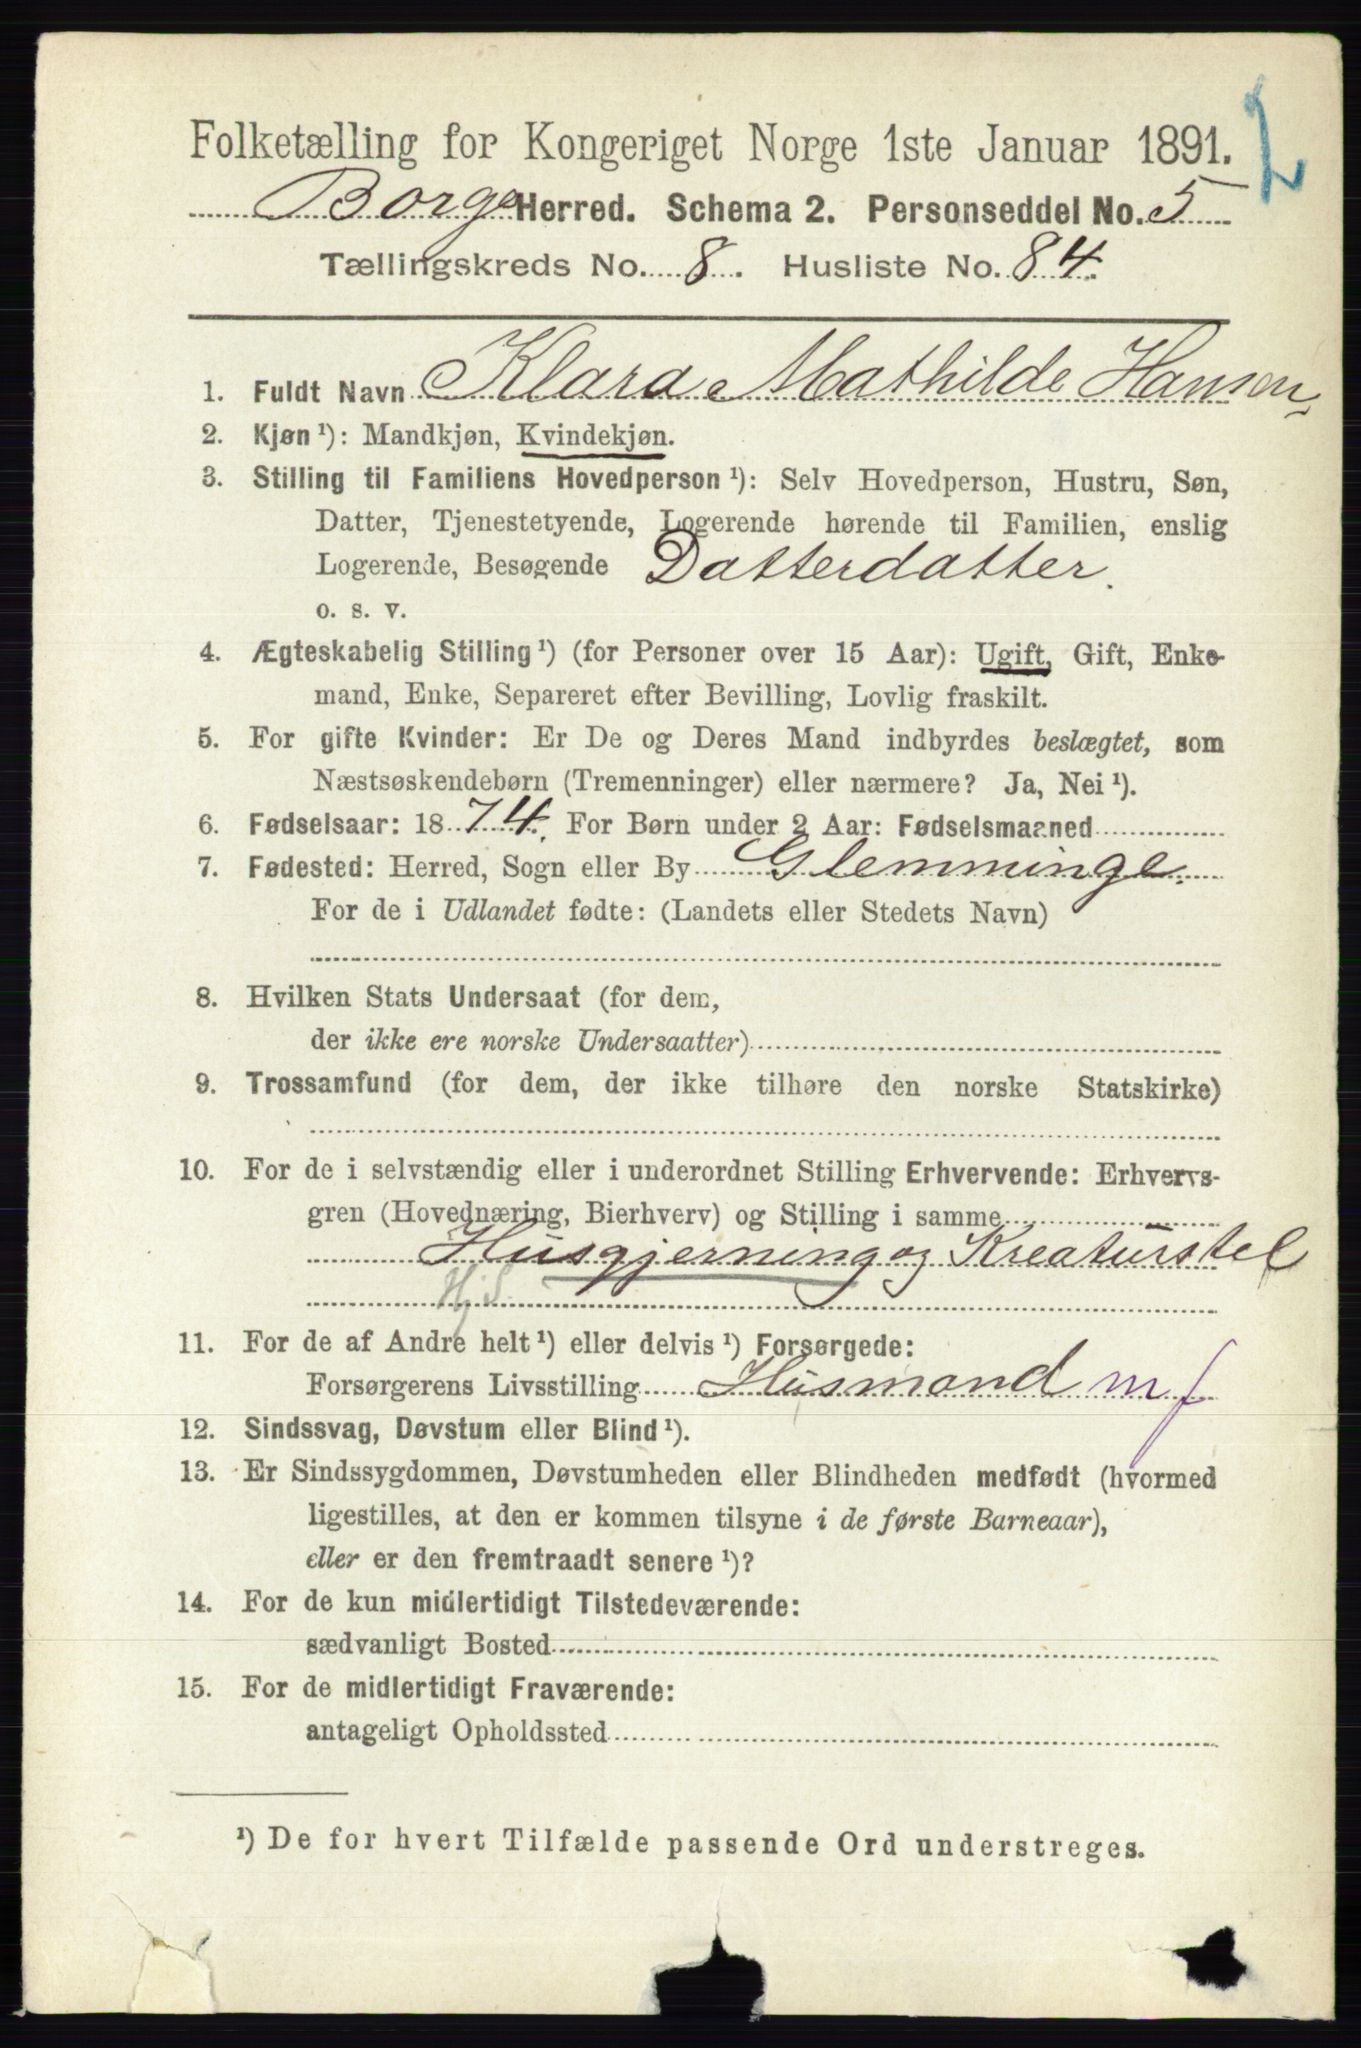 Folketælling for Kongeriget Norge 1ste Januar 1891.
Borge Herred. Schema 2. Personseddel No. 5
Tællingskreds No. 8. Husliste No. 84.
1. Fuldt Navn Klara Mathilde Hansen
2. Kjøn ¹): Mandkjøn, Kvindekjøn.
3. Stilling til Familiens Hovedperson ¹): Selv Hovedperson, Hustru, Søn,
Datter, Tjenestetyende, Logerende hørende til Familien, enslig
Logerende, Besøgende Datterdatter.
o. s. v.
4. Ægteskabelig Stilling ¹) (for Personer over 15 Aar): Ugift, Gift, Enke-
mand, Enke, Separeret efter Bevilling, Lovlig fraskilt.
5. For gifte Kvinder: Er De og Deres Mand indbyrdes beslægtet, som
Næstsøskendebørn (Tremenninger) eller nærmere? Ja, Nei ¹).
6. Fødselsaar: 1874. For Børn under 2 Aar: Fødselsmaaned
7. Fødested: Herred, Sogn eller By Glemminge.
For de i Udlandet fødte: (Landets eller Stedets Navn)
8. Hvilken Stats Undersaat (for dem,
der ikke ere norske Undersaatter)
9. Trossamfund (for dem, der ikke tilhøre den norske Statskirke)
10. For de i selvstændig eller i underordnet Stilling Erhvervende: Erhvervs-
gren (Hovednæring, Bierhverv) og Stilling i samme
Husgjerning og Kreaturstel
Hj S.
11. For de af Andre helt ¹) eller delvis ¹) Forsørgede:
Forsørgerens Livsstilling Husmand m f
12. Sindssvag, Døvstum eller Blind ¹).
13. Er Sindssygdommen, Døvstumheden eller Blindheden medfødt (hvormed
ligestilles, at den er kommen tilsyne i de første Barneaar),
eller er den fremtraadt senere ¹)?
14. For de kun midlertidigt Tilstedeværende:
sædvanligt Bosted
15. For de midlertidigt Fraværende:
antageligt Opholdssted
¹) De for hvert Tilfælde passende Ord understreges.